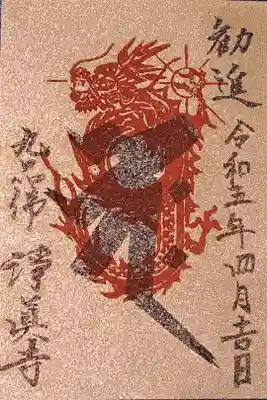 勧進
令和五年四月吉日
九品佛
淨眞寺